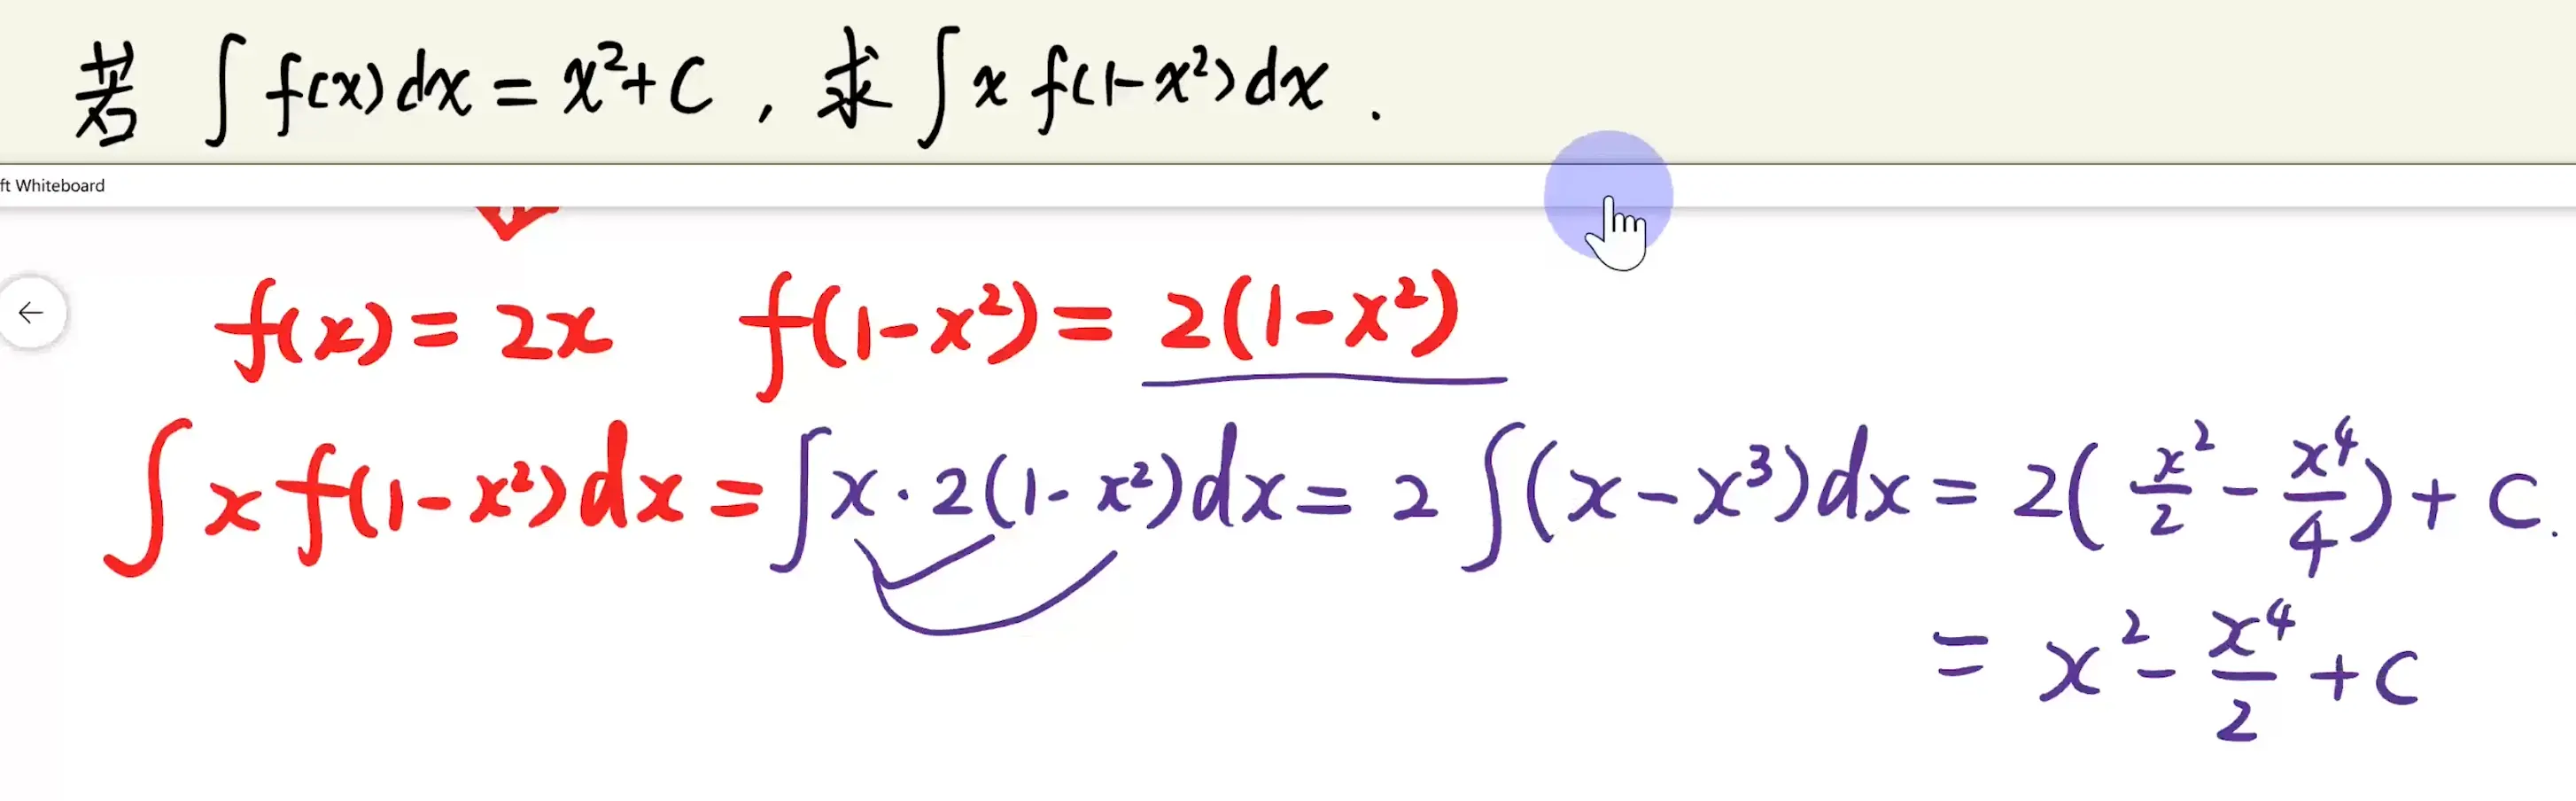 若 ∫ f(x) dx = x²+C , 求 ∫ x f(1-x²) dx .
ft Whiteboard
f(x) = 2x f(1-x²) = 2(1-x²)
∫ x f(1-x²) dx = ∫ x · 2(1-x²) dx = 2 ∫ (x-x³) dx = 2( x²/2 - x⁴/4 ) + C.
= x² - x⁴/2 + C